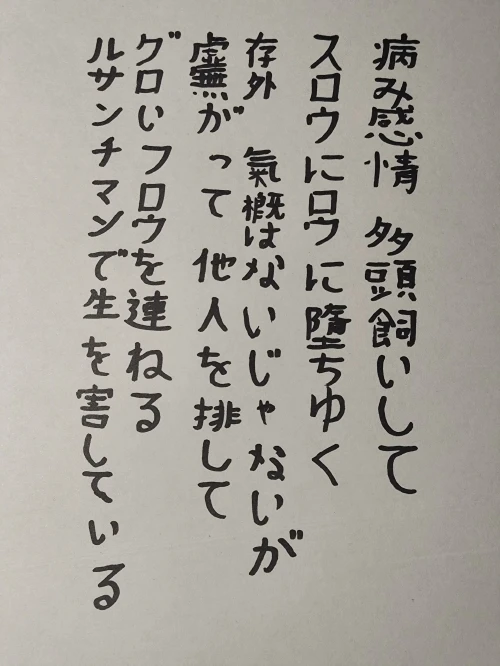 病み感情 多頭飼いして
スロウにロウに墮ちゆく
存外 氣概はないじゃないが
虛無がって他人を排して
グロいフロウを連ねる
ルサンチマンで生を害している